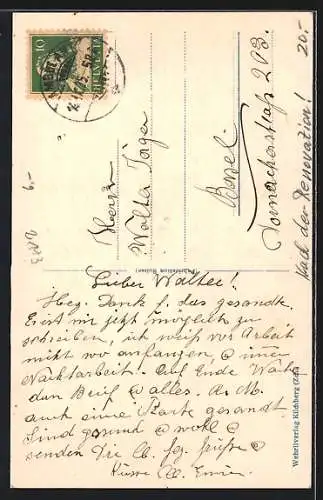 10
HELVETIA
Herrn
Walter Jäger
Basel
Dornacherstraße 203.
Nach der Renovation! 20.-
Lieber Walter!
Hzg. Dank f. das gesandte.
Erst mir jetzt möglich zu
schreiben, ich weiß vor Arbeit
nicht wo anfangen,
Nachtarbeit. Auf Ende Woche
dan Brief @ alles.
auch eine Karte gesandt
Sind gesund @ wohl @
senden Dir lb. hzg. Grüße @
Küsse
Wehrliverlag Kilchberg (Zch.)